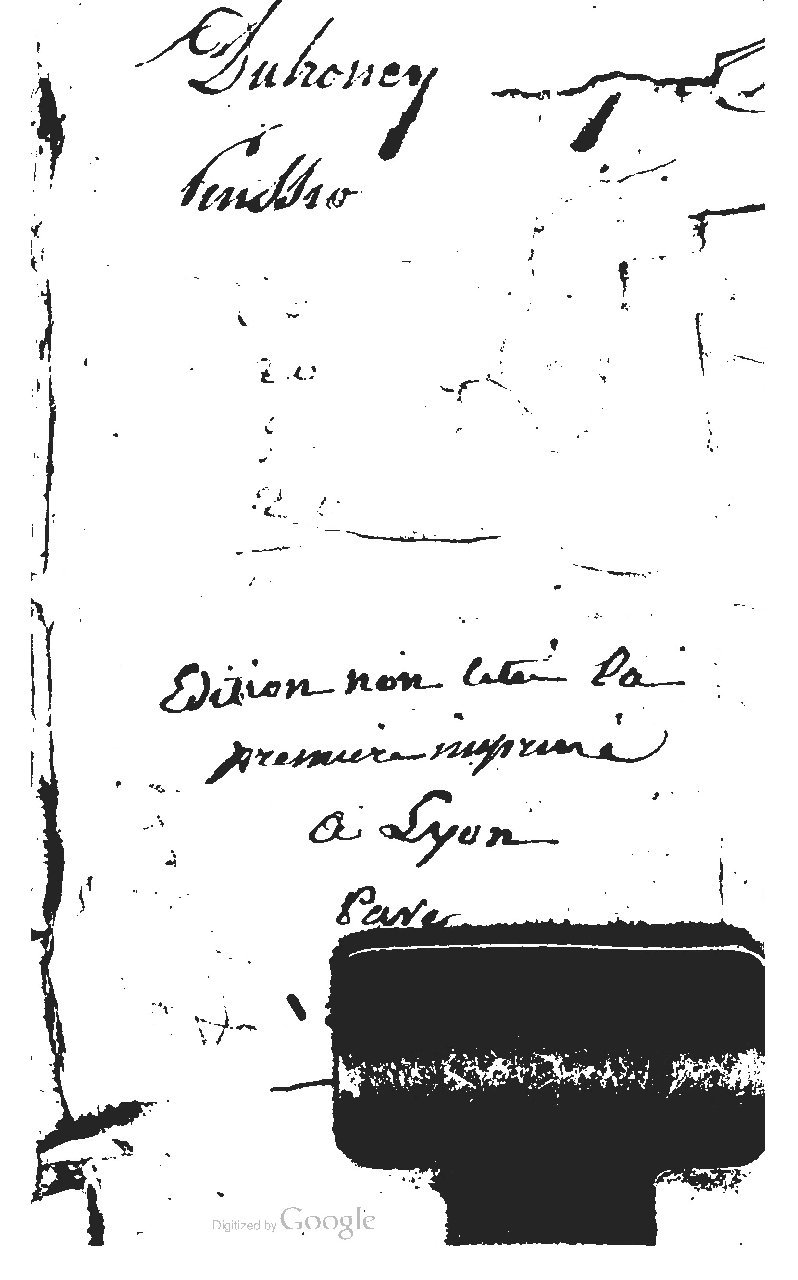 Duhoney
20
20
Edition non citée la
premiere imprimé
a Lyon
Digitized by Google